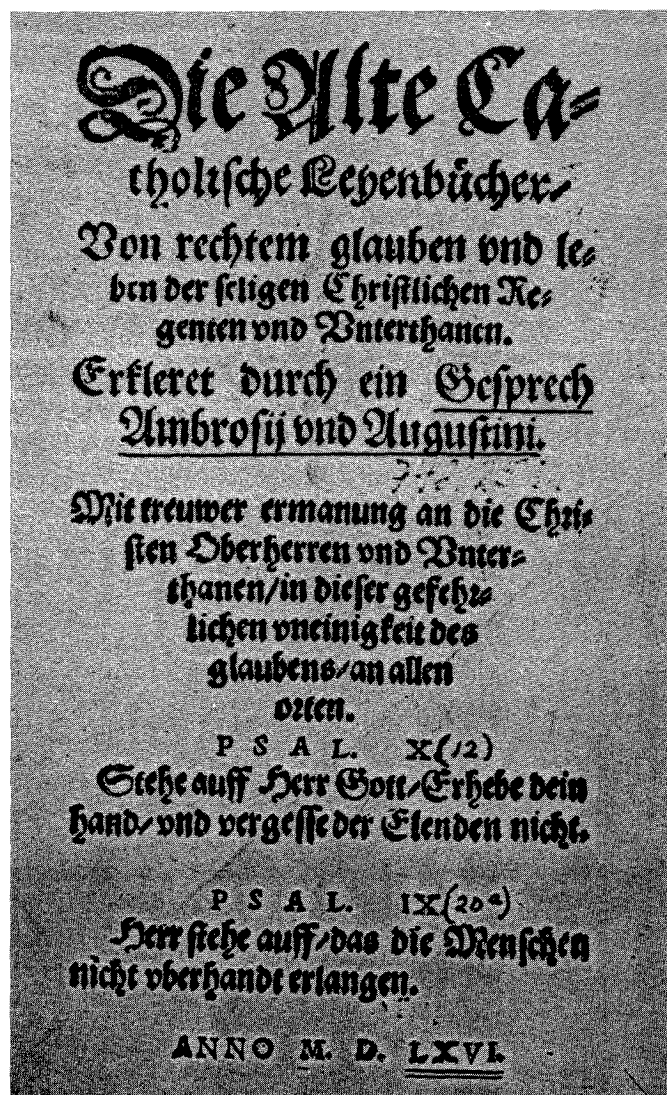 Die Alte Ca-
tholische Leyenbücher/
Von rechtem glauben vnd le-
ben der seligen Christlichen Re-
genten vnd Vnterthanen.
Erkleret durch ein Gesprech
Ambrosij vnd Augustini.
Mit treuwer ermanung an die Chri-
sten Oberherren vnd Vnter-
thanen/in dieser gefehr-
lichen vneinigkeit des
glaubens/an allen
orten.
PSAL. X(12)
Stehe auff Herr Gott/Erhebe dein
hand/vnd vergesse der Elenden nicht.
PSAL. IX(20a)
Herr stehe auff/das die Menschen
nicht vberhandt erlangen.
ANNO M. D. LXVI.